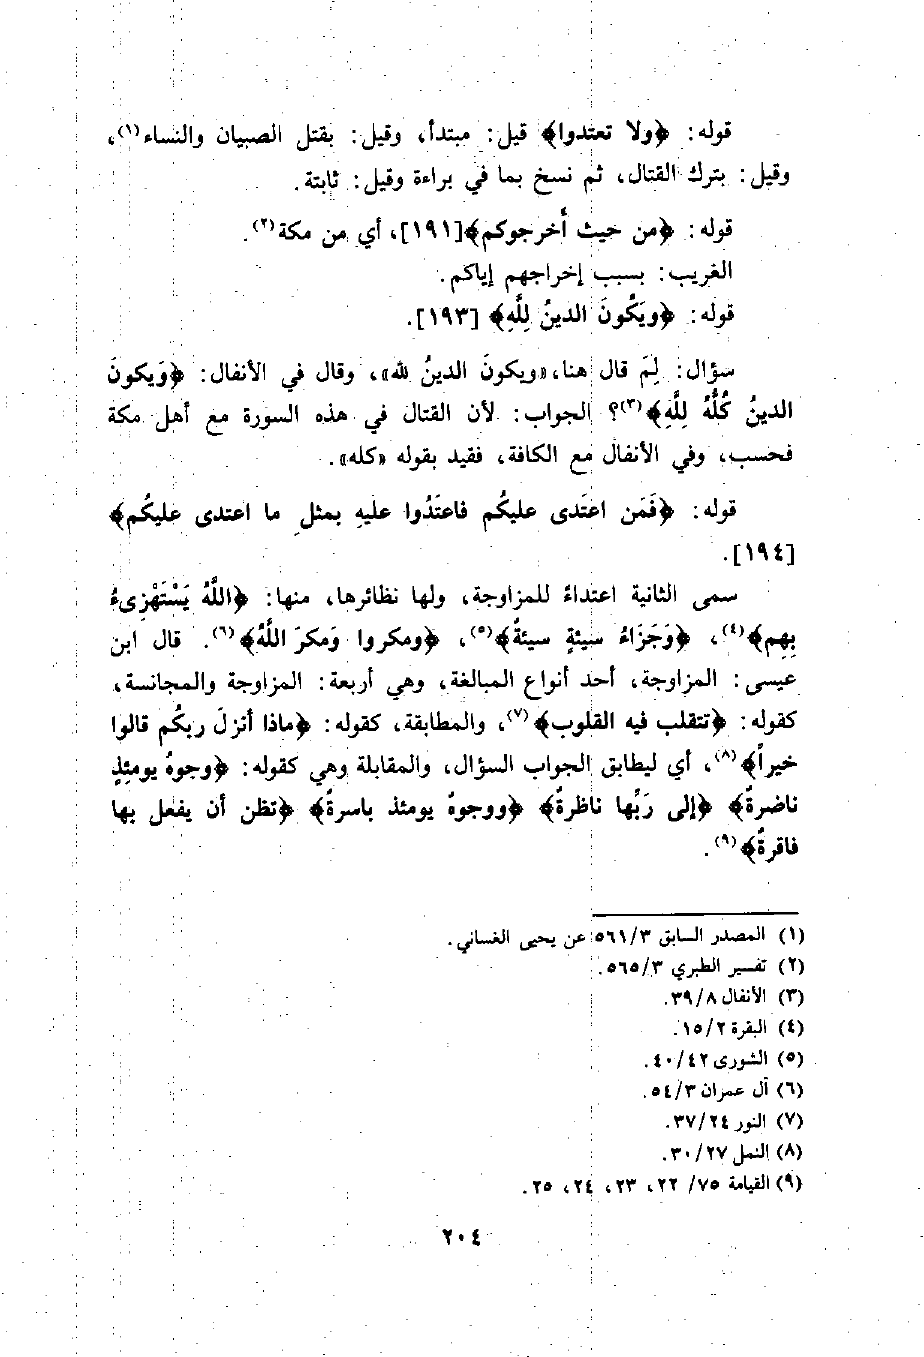 قوله: ﴿ولا تعتدوا﴾ قيل: مبتدأ، وقيل: بقتل الصبيان والنساء(١)،
وقيل: بترك القتال، ثم نسخ بما في براءة وقيل: ثابتة.
قوله: ﴿من حيث أخرجوكم﴾[١٩١]، أي من مكة(٢).
الغريب: بسبب إخراجهم إياكم.
قوله: ﴿ويَكُونَ الدينُ لِلَّهِ﴾ [١٩٣].
سؤال: لِمَ قال هنا، «ويكونَ الدينُ لله»، وقال في الأنفال: ﴿وَيكونَ
الدينُ كُلُّهُ لِلَّهِ﴾(٣)؟ الجواب: لأن القتال في هذه السورة مع أهل مكة
فحسب، وفي الأنفال مع الكافة، فقيد بقوله «كله».
قوله: ﴿فَمَن اعتَدى عليكُم فاعتَدُوا عليهِ بمثلِ ما اعتدى عليكُم﴾
[١٩٤].
سمى الثانية اعتداءً للمزاوجة، ولها نظائرها، منها: ﴿اللَّهُ يَسْتَهْزِىءُ
بِهِم﴾(٤)، ﴿وَجَزَاءُ سيئةٍ سيئةٌ﴾(٥)، ﴿ومكروا وَمكرَ اللَّهُ﴾(٦). قال ابن
عيسى: المزاوجة، أحد أنواع المبالغة، وهي أربعة: المزاوجة والمجانسة،
كقوله: ﴿تتقلب فيه القلوب﴾(٧)، والمطابقة، كقوله: ﴿ماذا أنزلَ ربكُم قالوا
خيراً﴾(٨)، أي ليطابق الجواب السؤال، والمقابلة وهي كقوله: ﴿وجوهٌ يومئِذٍ
ناضرةٌ﴾ ﴿إلى رَبِّها ناظرةٌ﴾ ﴿ووجوهٌ يومئذ باسرةٌ﴾ ﴿تظن أن يفعل بها
فاقرةٌ﴾(٩).
(١) المصدر السابق ٥٦١/٣ عن يحيى الغساني.
(٢) تفسير الطبري ٥٦٥/٣.
(٣) الأنفال ٣٩/٨.
(٤) البقرة ١٥/٢.
(٥) الشورى ٤٠/٤٢.
(٦) آل عمران ٥٤/٣.
(٧) النور ٣٧/٢٤.
(٨) النمل ٣٠/٢٧.
(٩) القيامة ٧٥/ ٢٢، ٢٣، ٢٤، ٢٥.
٢٠٤